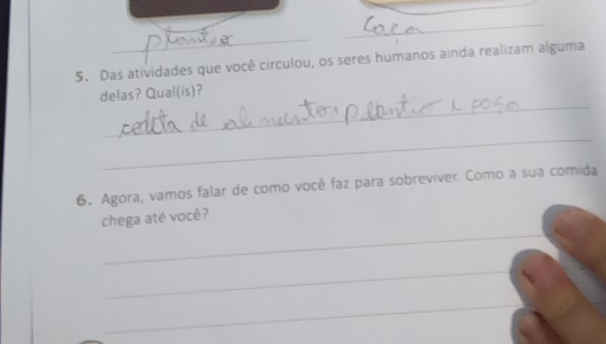 plantio
Caça
5. Das atividades que você circulou, os seres humanos ainda realizam alguma
delas? Qual(is)?
coleta de alimentos, plantio e
6. Agora, vamos falar de como você faz para sobreviver. Como a sua comida
chega até você?